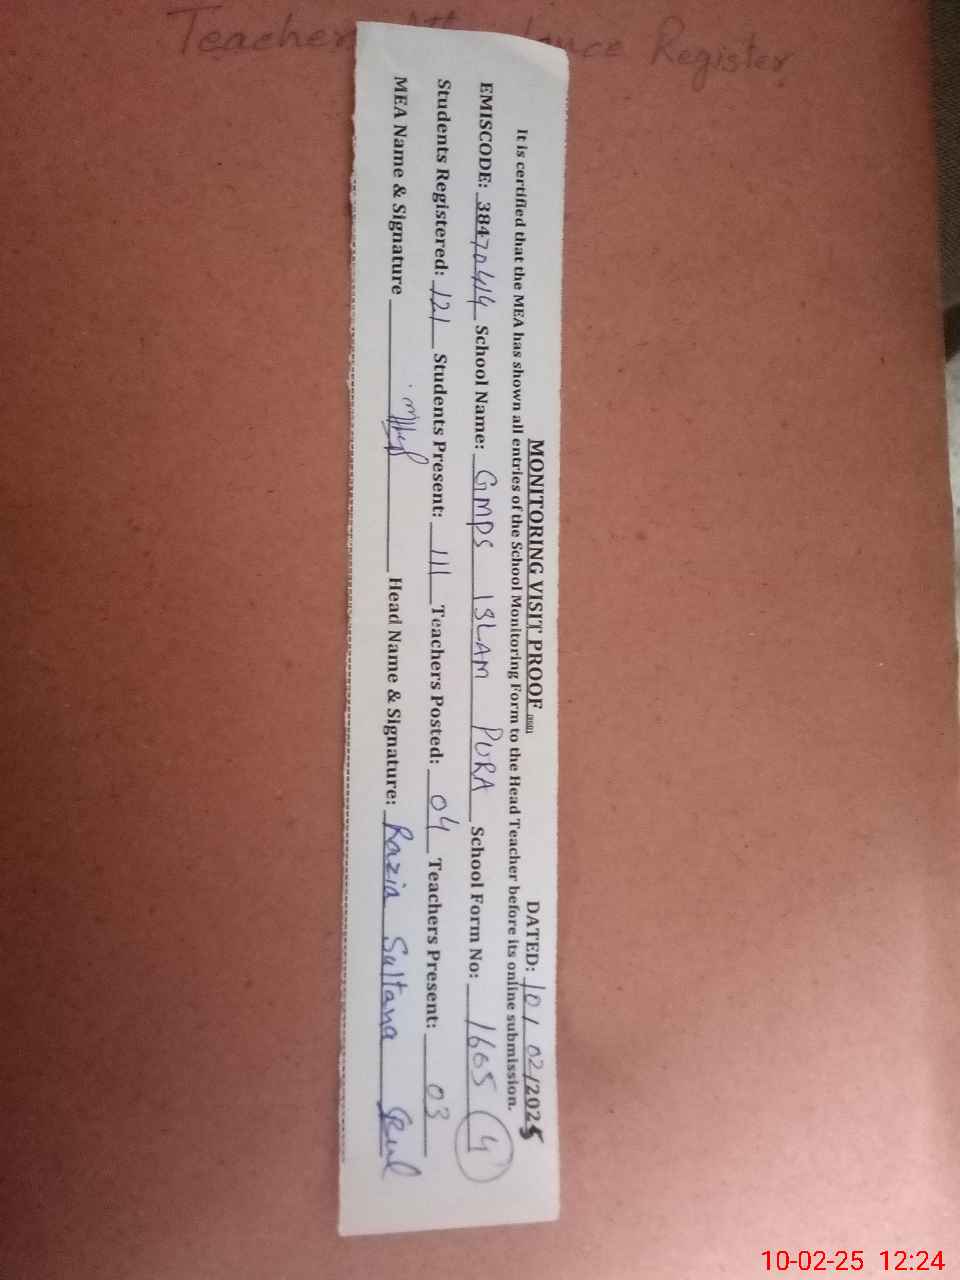 Teachers Register
MONITORING VISIT PROOF
DATED: 10/02/2025
It is certified that the MEA has shown all entries of the School Monitoring Form to the Head Teacher before its online submission.
EMISCODE: 38470414 School Name: GMPS ISLAM PURA School Form No: 1605 4
Students Registered: 121 Students Present: 111 Teachers Posted: 04 Teachers Present: 03
MEA Name & Signature Head Name & Signature: Razia Sultana
10-02-25 12:24